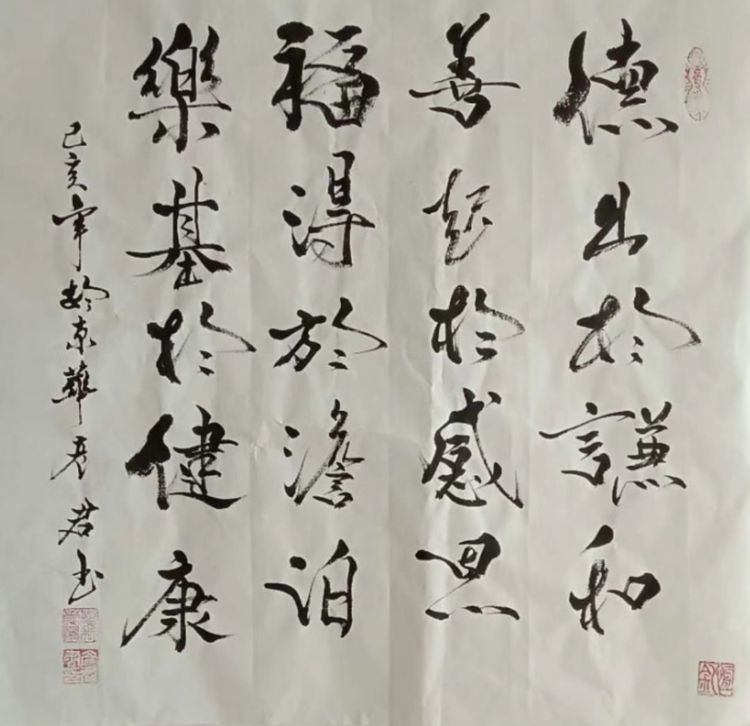 德出於謙和
善起於感恩
福得於澹泊
樂基於健康
己亥年於京華 君玉